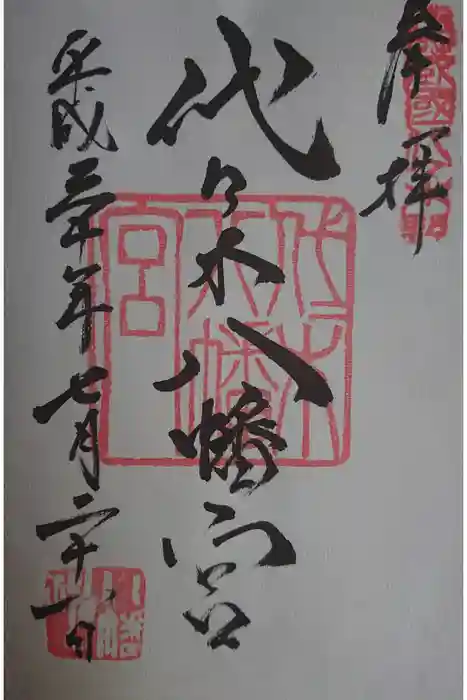 奉拝
代々木八幡宮
代々木八幡宮
平成三十年七月二十一日